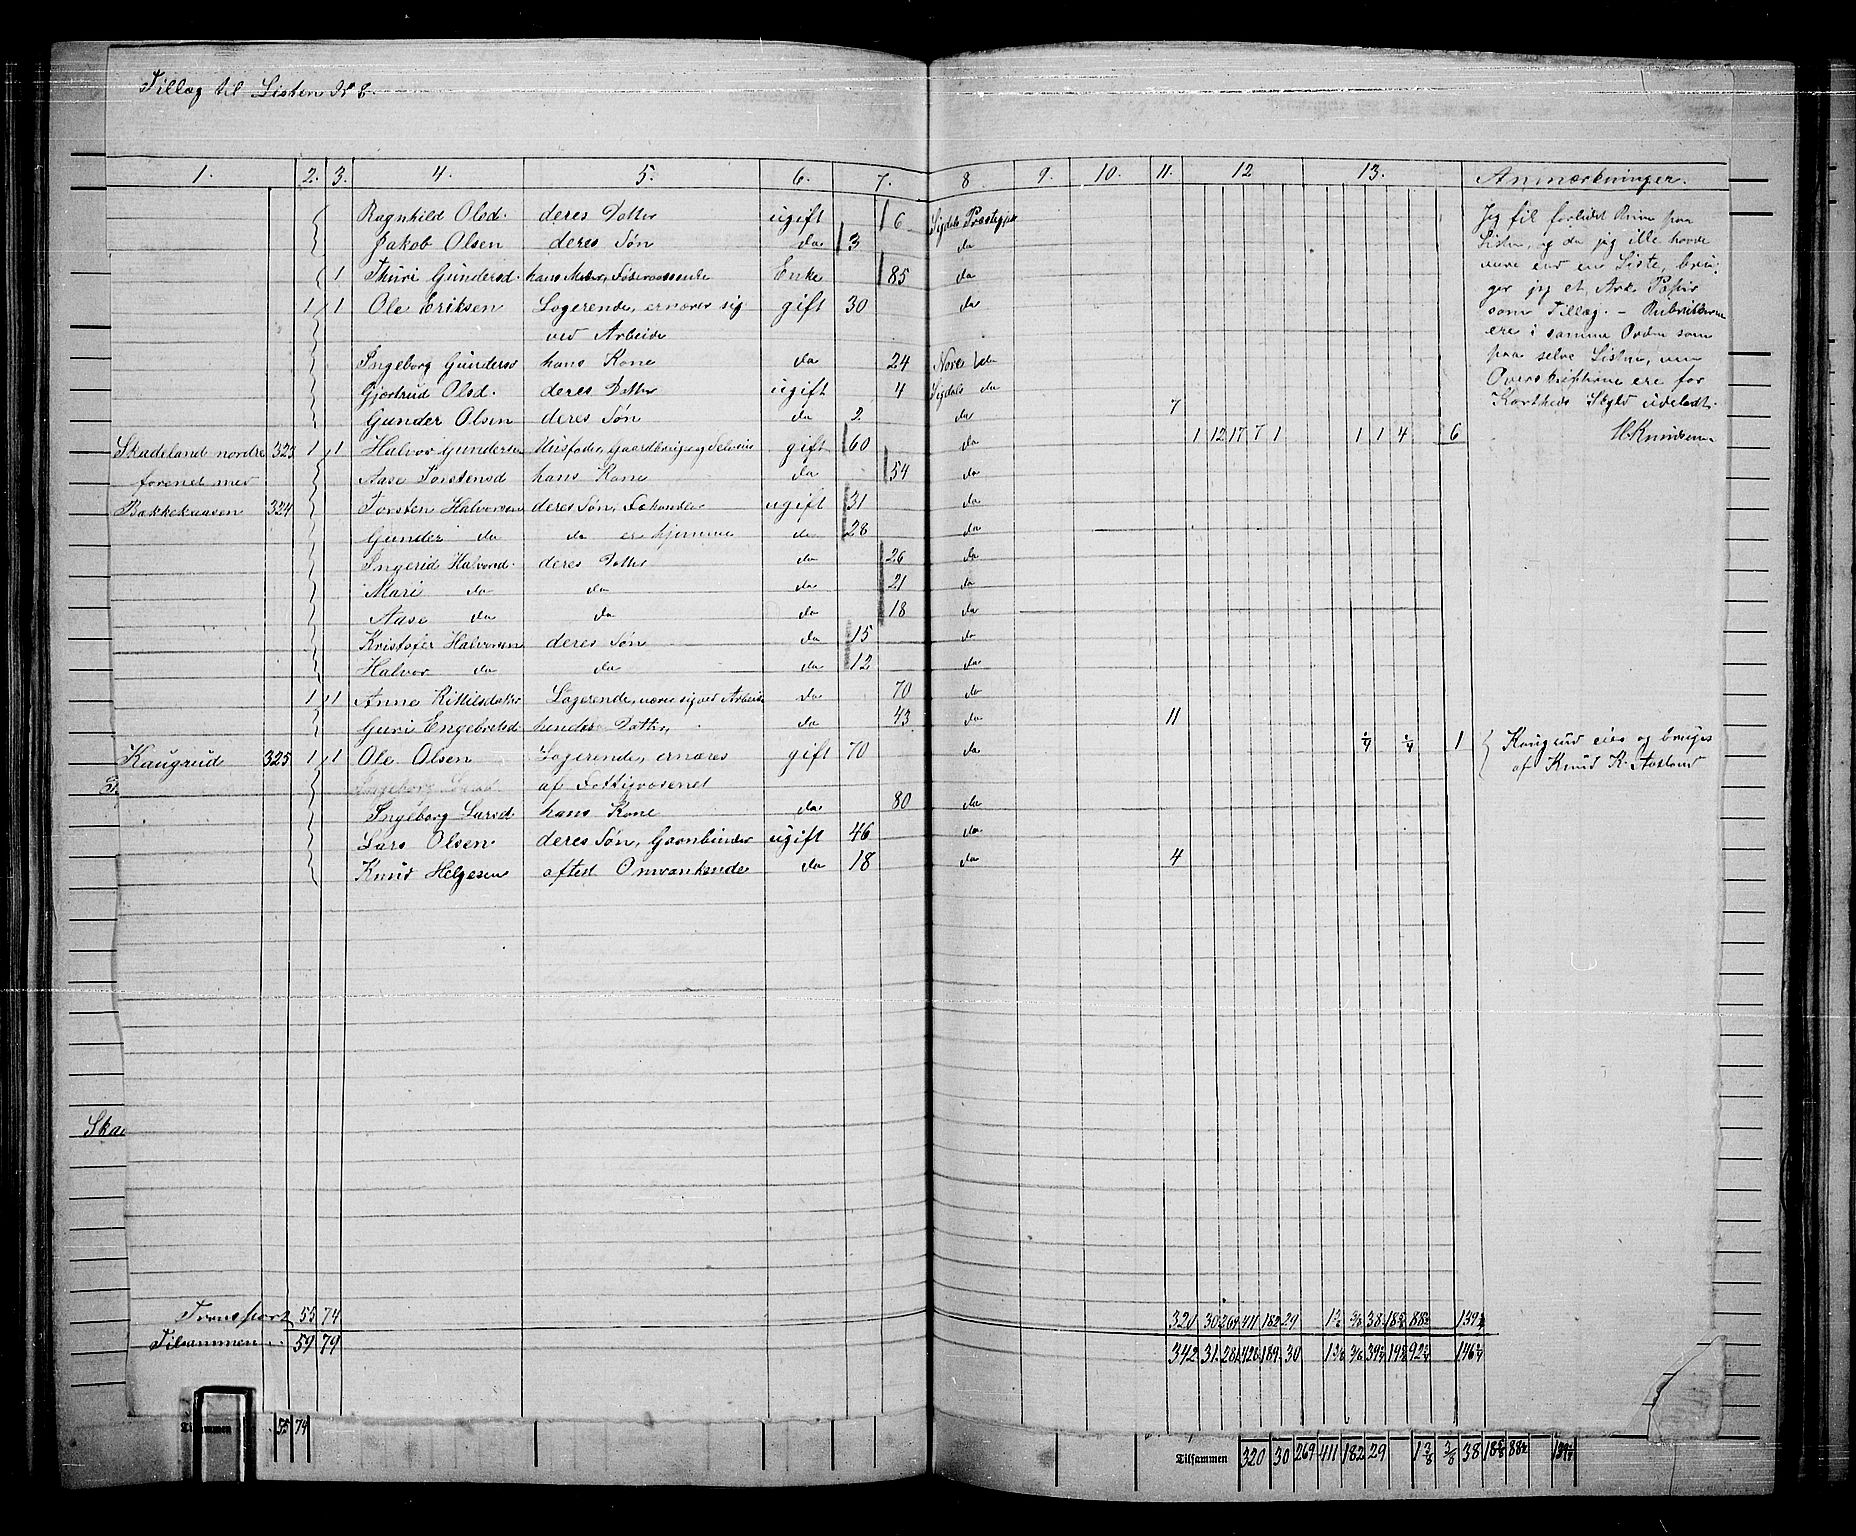 Tillæg til Listen N 8.
1. 2. 3. 4. 5. 6. 7. 8 9. 10. 11. 12 13. Anmærkninger.
Ragnhild Olsd. deres Datter ugift 6 Sigdals Præstegj
Jakob Olsen deres Søn do 3 do
1 Thuri Gundersd. hans Moder, Enke 85 do
1 1 Ole Eriksen Logerende, ernærer sig gift 30 do
ved Arbeide
Ingeborg Gundersd hans Kone do 24 Nore do
Gjertrud Olsd. deres Datter ugift 4 Sigdals do
Gunder Olsen deres Søn do 2 do 7
Skadeland nordre 323 1 1 Halvor Gundersen Husfader, Gaardbruger og Selveier gift 60 do 1 12 17 7 1 1 1 4 6
forenet med Aase Torstensd hans Kone do 54 do
Bakkekaasen 324 Torsten Halvorsen deres Søn, ugift 31 do
Gunder do do er hjemme do 28 do
Ingerid Halvorsd. deres Datter do 26 do
Mari do do do 21 do
Aase do do do 18 do
Kristofer Halvorsen deres Søn do 15 do
Halvor do do do 12 do
1 1 Anne Kittilsdatter Logerende, nærer sig ved Arbeide do 70 do
Guri Engebretsd hendes Datter, do 43 do 11
Kaugrud 325 1 1 Ole Olsen Logerende, ernæres gift 70 do 1/4 1/4 1
af Fattigvæsenet
Ingeborg Larsd hans Kone do 80 do
Lars Olsen deres Søn, Garnbinder ugift 46 do
Knud Helgesen afted Omvankende do 18 do 4
Jeg fik forlidet Rum paa
Listen, og da jeg ikke havde
mere end en Liste, bru-
ger jeg et Ark Papir
som Tillæg. – Rubrikkerne
ere i samme Orden som
paa selve Listen, men
Overskrifterne ere for
Kortheds Skyld udeladt.
H. Knudsen
Kaugrud eies og bruges
af Knud K. Aasland
Skae
Transport 55 74 320 30 269 411 182 29 38 139
Tilsammen 59 79 342 31 281 428 189 30 146
Tilsammen 55 74
Tilsammen 320 30 269 411 182 29 1 3/8 3/8 38